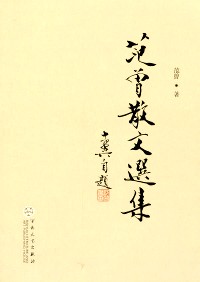 范曾 • 著
范曾散文選集
十翼自題
百花文艺出版社